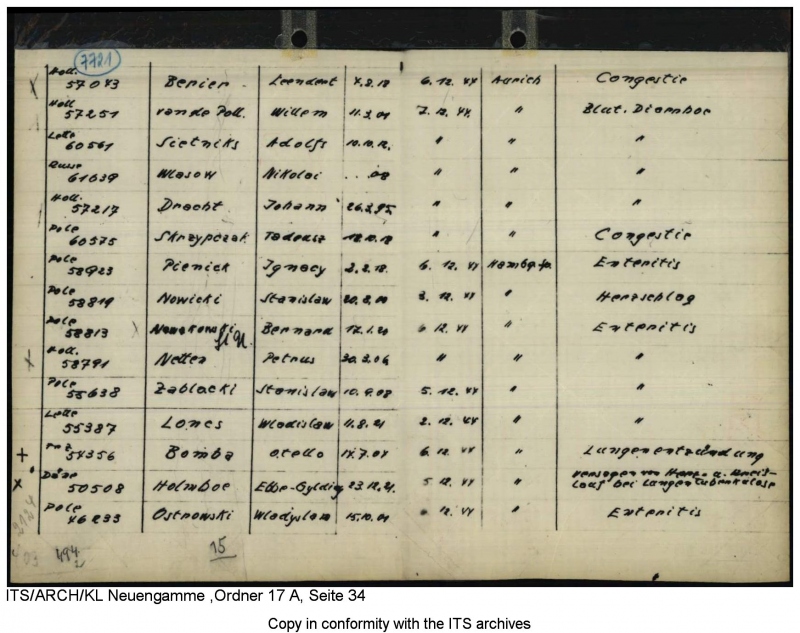 7721
Holl.
57043 Berier Leendert 4.2.18 6.12.44 Aurich Congestie
Holl
57251 van de Poll. Willem 11.3.01 7.12.44 " Blut. Diarrhoe
Lette
60561 Sietniks Adolfs 10.10.12. " " "
Russe
61039 Wlasow Nikolai ...08 " " "
Holl.
57217 Dracht Johann 26.2.95 " " "
Pole
60575 Skrzypczak Tadeusz 18.10.18 " " Congestie
Pole
58923 Pienick Ignacy 2.2.18. 6.12.44 Enteritis
Pole
58819 Nowicki Stanislaw 3.12.44 " Herzschlag
Pole
58813 Nowakowski Bernard 17.1.20 6 12.44 " Enteritis
Holl.
58791 Netten Petrus 30.3.06 " " "
Pole
55638 Zablocki Stanislaw 10.9.08 5.12.44 " "
Lette
55387 Loncs Wladislaw 11.8.21 2.12.44 " "
54356 Bomba Otello 14.7.04 6.12.44 " Lungenentzündung
Däne
50508 Holmboe Ebbe-Gylding 23.12.21. 5 12.44 " Versagen von Herz- u. Kreis-
lauf bei Lungentuberkulose
Pole
46233 Ostrowski Wladyslaw 15.10.01 12.44 " Enteritis
494
15
ITS/ARCH/KL Neuengamme ,Ordner 17 A, Seite 34
Copy in conformity with the ITS archives